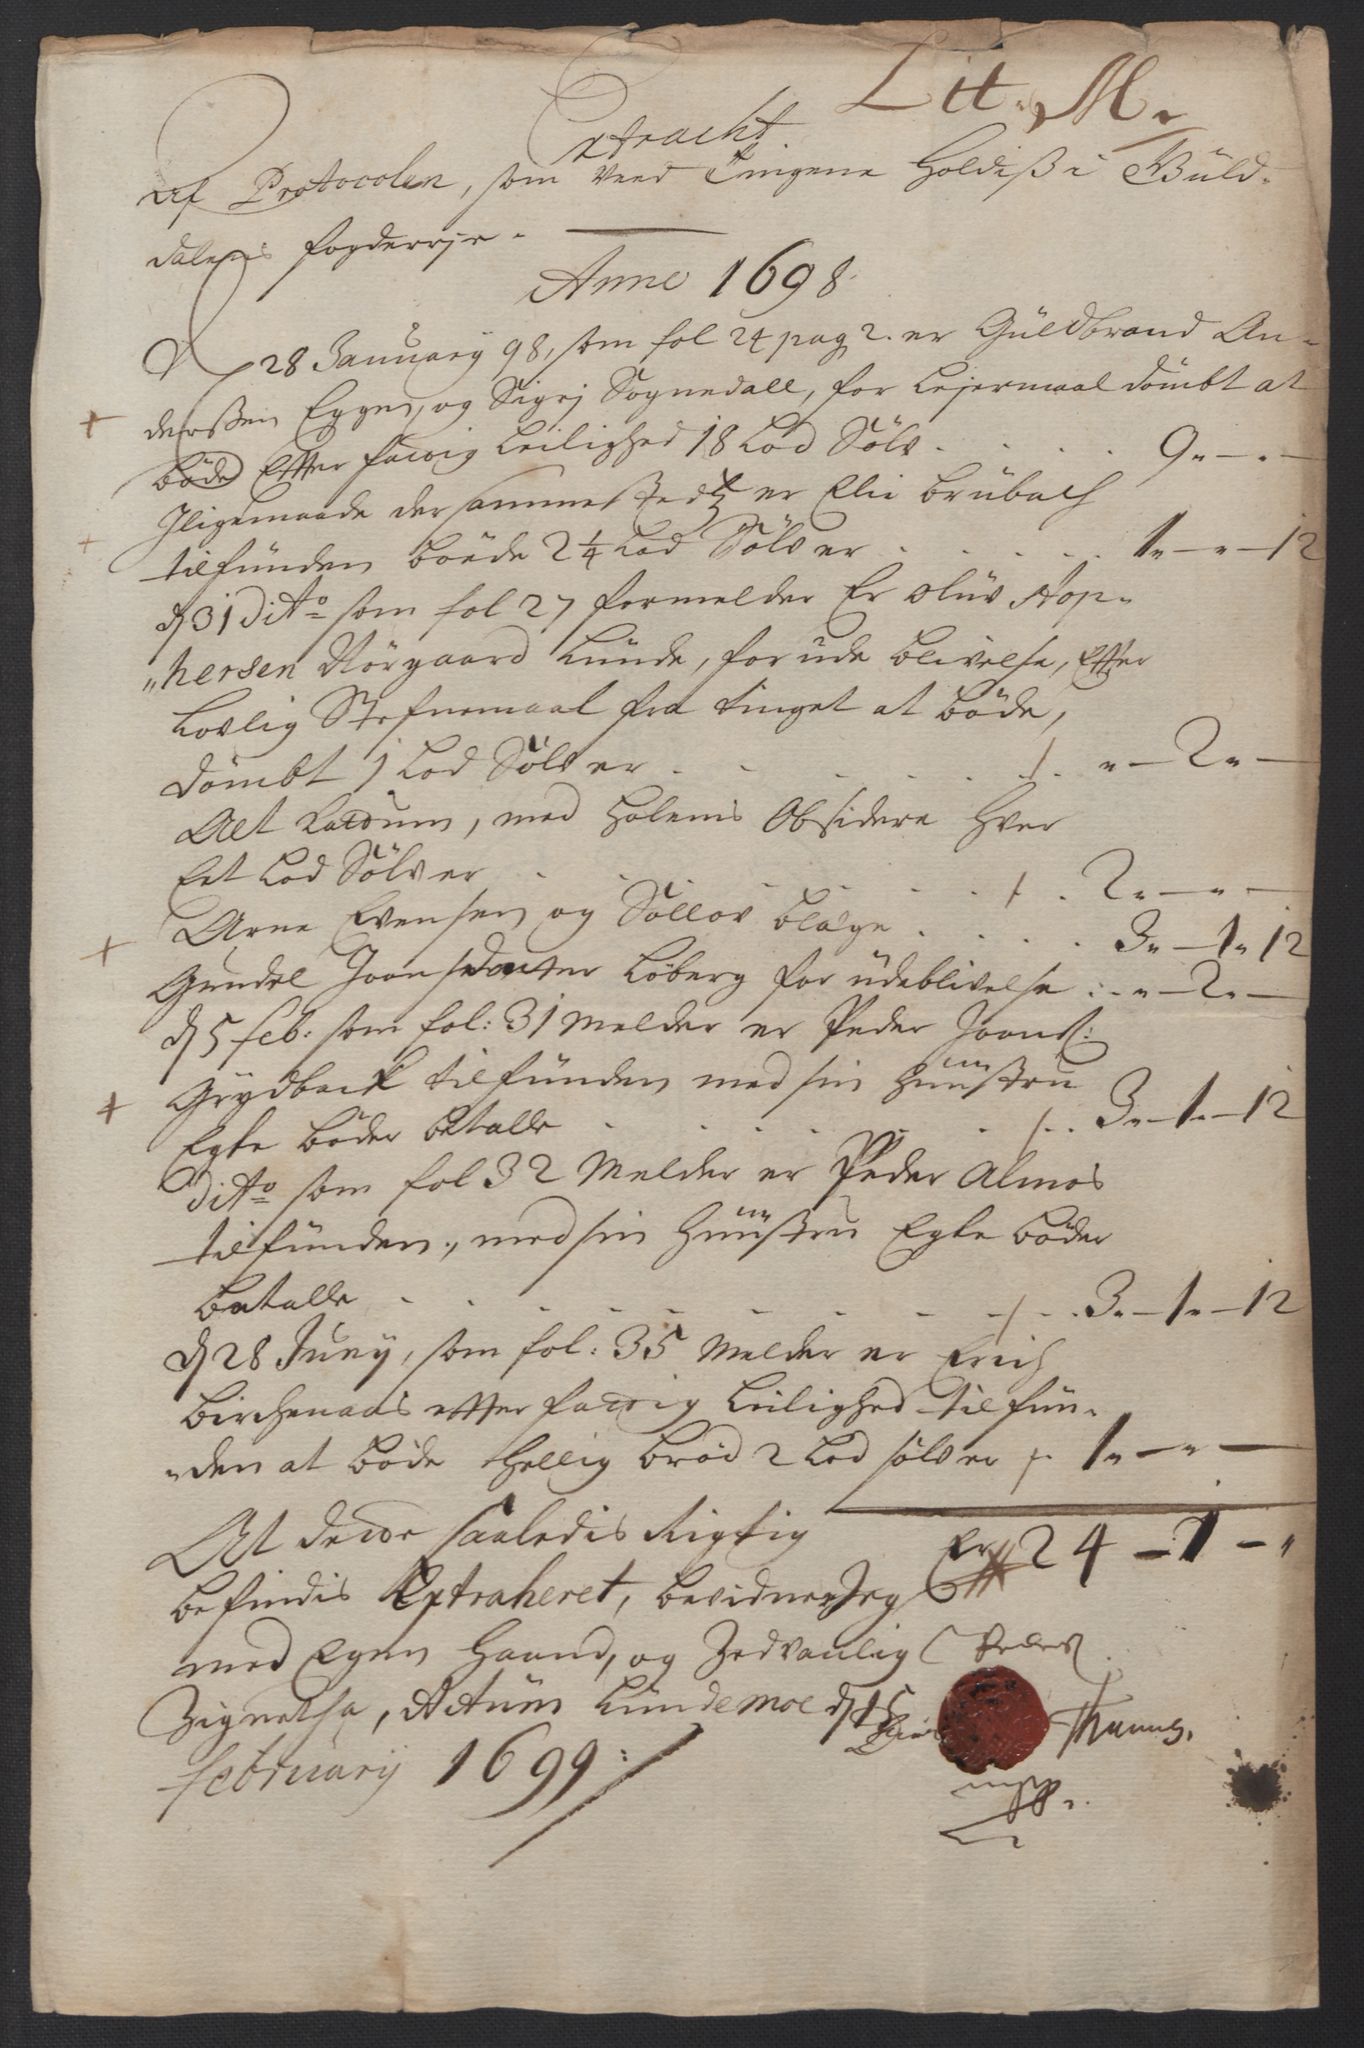 Lit. M.
Extracht
Af Protocolen, som veed Tingene Holdiss i Guld-
dalens fogderije.
Anno 1698.
D 28 January 98, som fol 24 pag 2. er Guldbrand An-
derssen Eggen, og Sigrj Sognedall, for Lejermaal dömbt at
böde Effter fattig Leilighed 18 Lod Sölv . . . . 9"—"—
Iligemaade der sammestedtz er Elii Brubach
tilfunden böede 2 1/4 Lod Sölver . . . . . 1"—"—12
d 31 Dito som fol 27 formelder Er Oluv Stop-
"hersen Störgaard Lunde, for ude blivelse, Effter
Lovlig Stefnemaal fra tinget at böde,
dömbt 1 Lod Sölver . . . . . . "—2"—
Alt Laudum, med Holems Obsidere Hver
Eet Lod Sölver . . . . . . 2"—"—
Arne Evensen og Sollov blæge . . . . 3"—1"12
Gundel Joensdautter Löberg for udeblivelse . . "—2"—
d 5 feb: som fol: 31 melder er Peder Joens:
Grydback tilfunden med sin Huusstru
Egte böder betalle . . . . . . . 3"—1"—12
Dito som fol 32 Melder er Peder Almos
tilfunden, med sin Huusstru Egte böder
betalle . . . . . . . . . 3"—1"—12
d 28 Juny, som fol: 35 Melder er Erich
Birchenaas effter fattig Leilighed tilfun-
"den at böde Hellig bröd 2 Lod sölver . 1"—"—
At dette saaledis Rigtig Er 24—1—"
befindis Extraheret, bevidner Jeg
med Egen Haand, og Zedvanlig
Zignethe, Actum Lundemoe d 15
february 1699:
Thamus.
mpp.